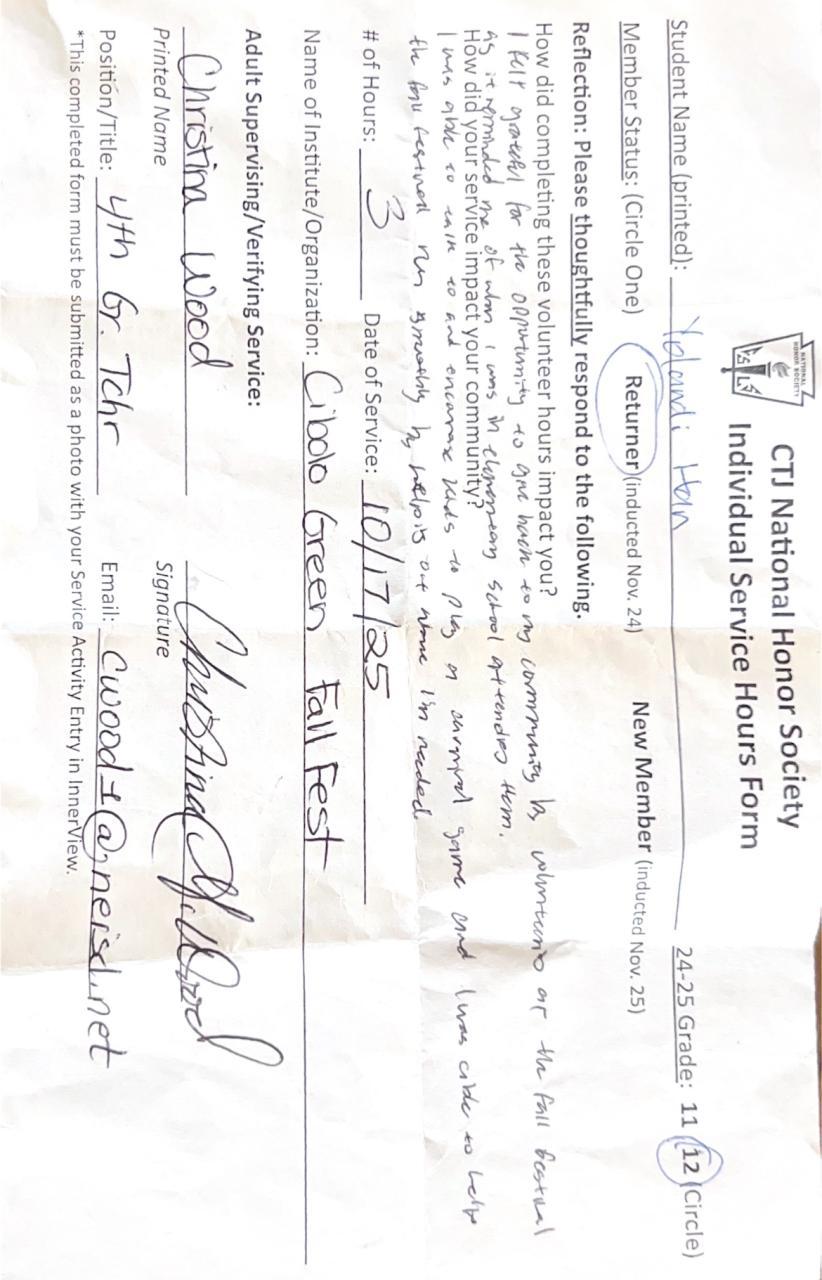 NATIONAL HONOR SOCIETY
CTJ National Honor Society
Individual Service Hours Form
Student Name (printed): Yolandi Han 24-25 Grade: 11 12 (Circle)
Member Status: (Circle One) Returner (inducted Nov. 24) New Member (inducted Nov. 25)
Reflection: Please thoughtfully respond to the following.
How did completing these volunteer hours impact you?
I felt grateful for the opportunity to give back to my community by volunteering at the fall festival
as it reminded me of when I was in elementary school attending them.
How did your service impact your community?
I was able to talk to and encourage kids to play a carnival game and I was able to help
the fall festival run smoothly by helping out where I'm needed
# of Hours: 3 Date of Service: 10/17/25
Name of Institute/Organization: Cibolo Green Fall Fest
Adult Supervising/Verifying Service:
Christina Wood
Printed Name Signature
Position/Title: 4th Gr. Tchr Email: cwood1@neisd.net
*This completed form must be submitted as a photo with your Service Activity Entry in InnerView.